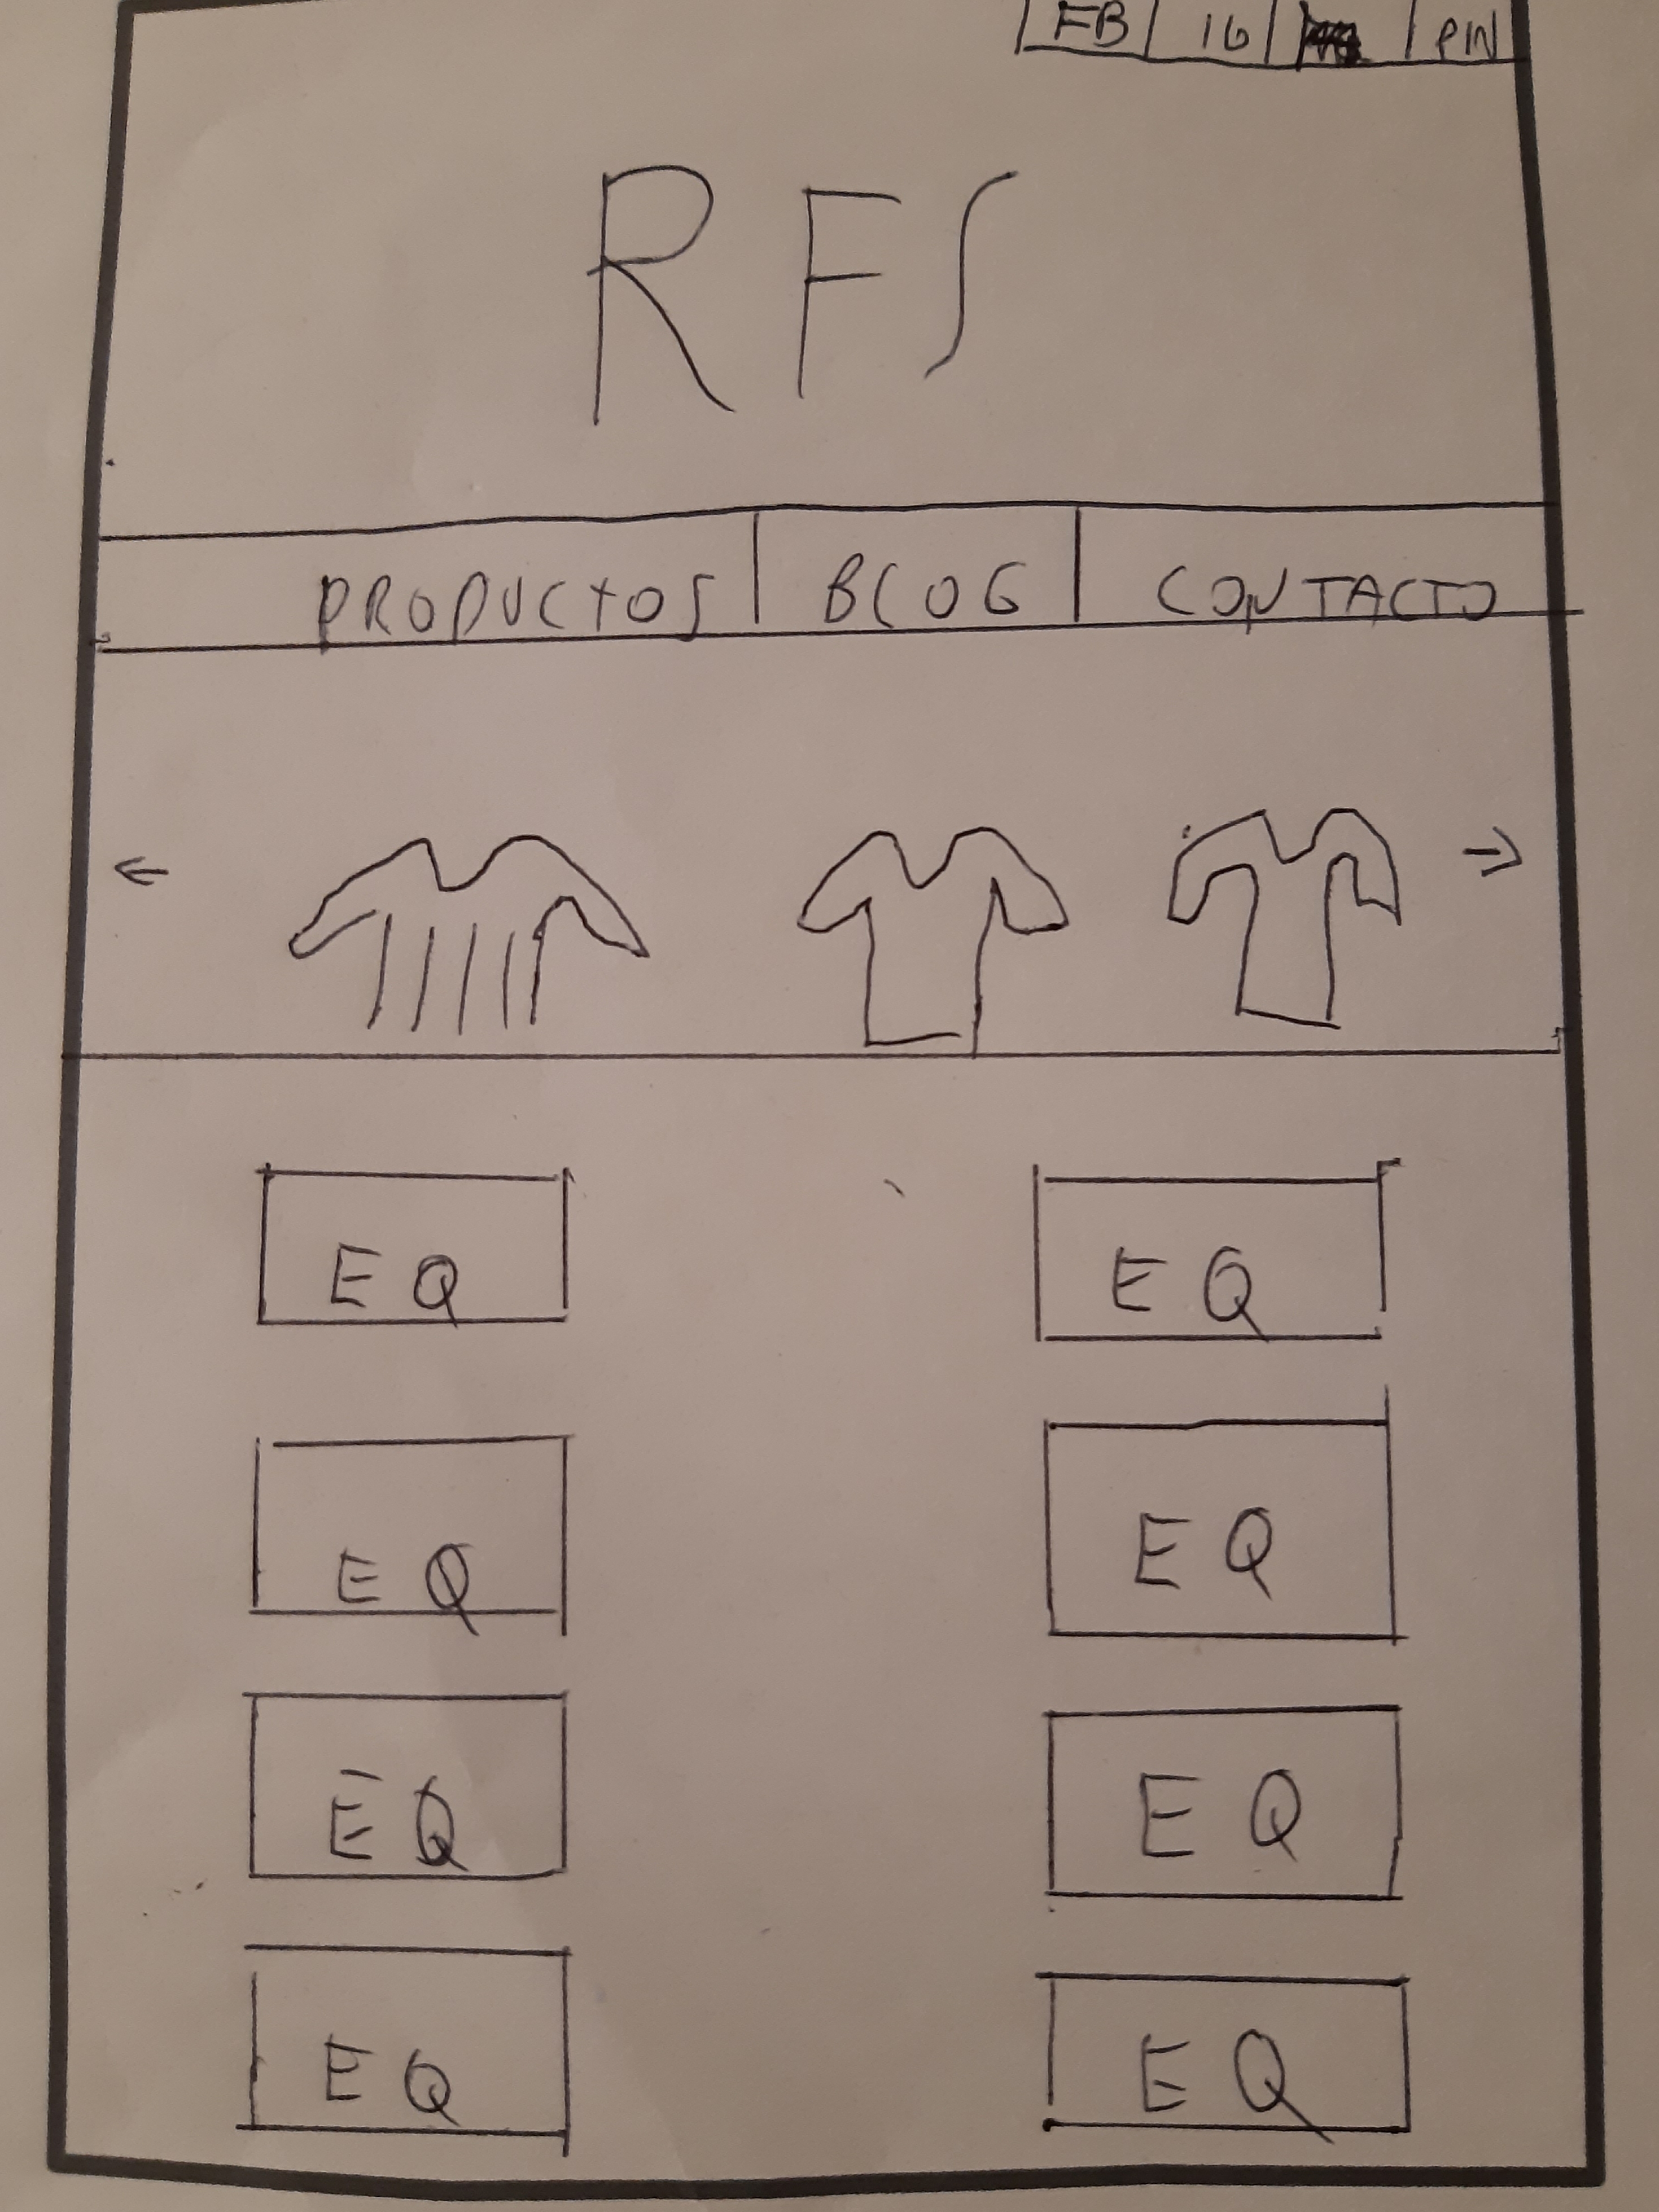 FB IG PIN
RFS
PRODUCTOS BLOG CONTACTO
EQ EQ
EQ EQ
EQ EQ
EQ EQ